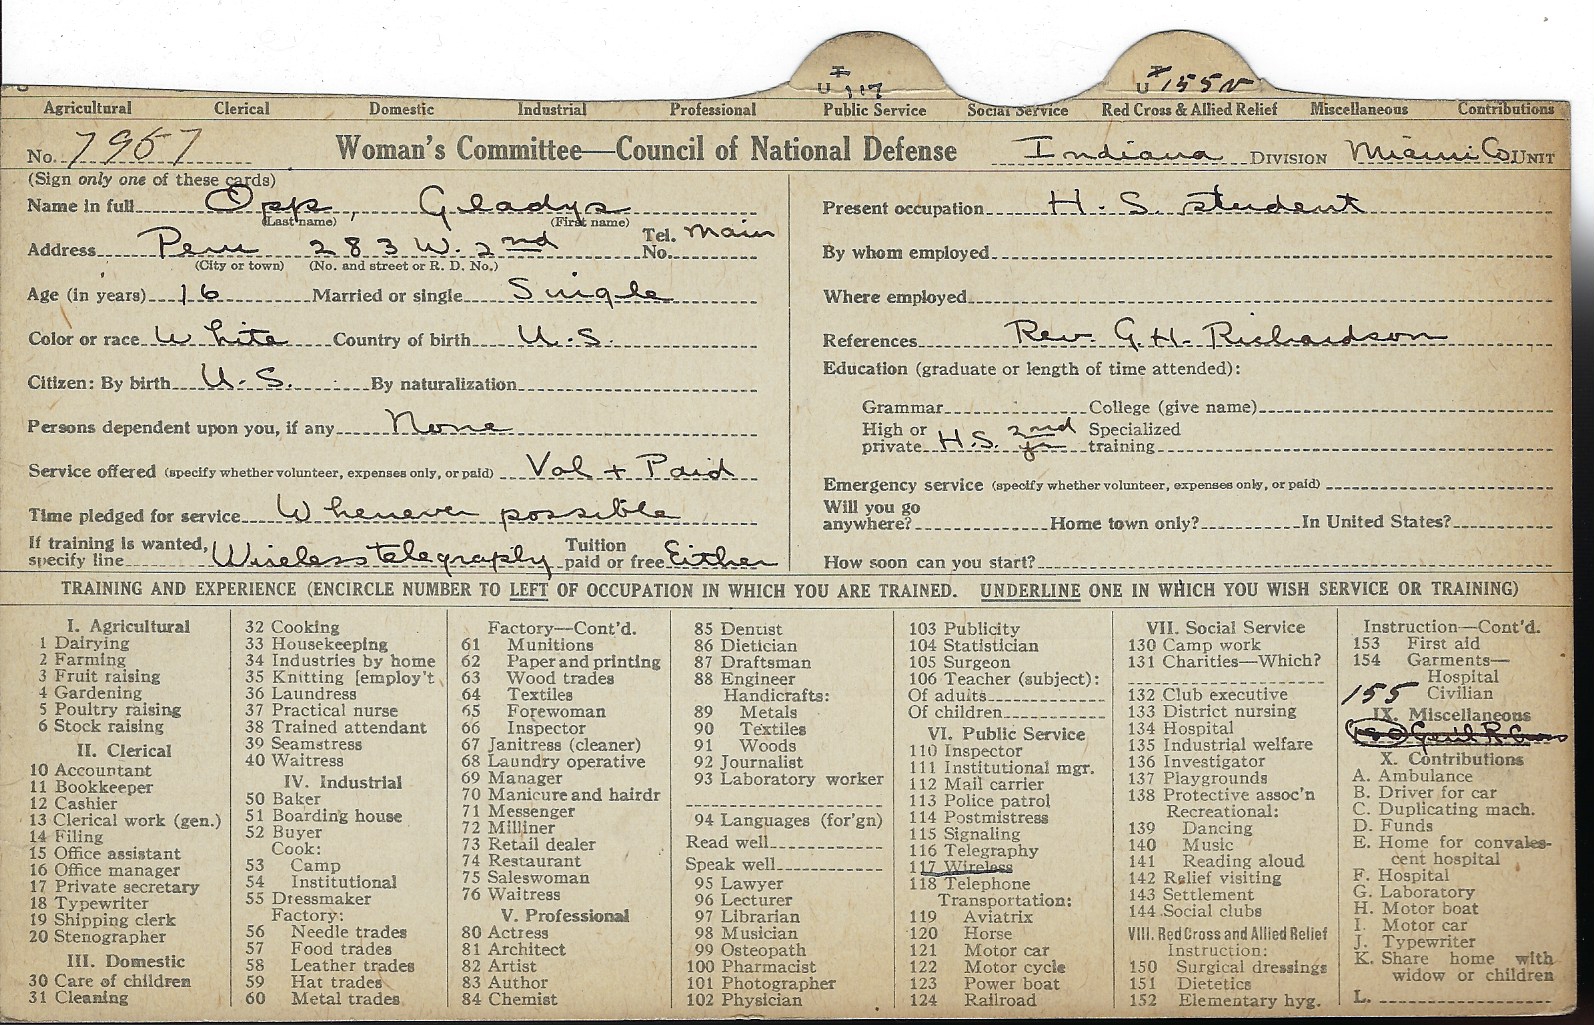 U 117 U 155 N
Agricultural Clerical Domestic Industrial Professional Public Service Social Service Red Cross & Allied Relief Miscellaneous Contributions
No. 7967 Woman's Committee—Council of National Defense Indiana DIVISION Miami Co. UNIT
(Sign only one of these cards)
Name in full Opp, Gladys
(Last name) (First name)
Address Peru 283 W. 2nd Tel. No. Main
(City or town) (No. and street or R. D. No.)
Age (in years) 16 Married or single Single
Color or race White Country of birth U.S.
Citizen: By birth U.S. By naturalization
Persons dependent upon you, if any None
Service offered (specify whether volunteer, expenses only, or paid) Vol + Paid
Time pledged for service Whenever possible
If training is wanted, specify line Wireless telegraphy Tuition paid or free Either
Present occupation H. S. student
By whom employed
Where employed
References Rev. G. H. Richardson
Education (graduate or length of time attended):
Grammar College (give name)
High or private H.S. 2nd yr Specialized training
Emergency service (specify whether volunteer, expenses only, or paid)
Will you go anywhere? Home town only? In United States?
How soon can you start?
TRAINING AND EXPERIENCE (ENCIRCLE NUMBER TO LEFT OF OCCUPATION IN WHICH YOU ARE TRAINED. UNDERLINE ONE IN WHICH YOU WISH SERVICE OR TRAINING)
I. Agricultural
1 Dairying
2 Farming
3 Fruit raising
4 Gardening
5 Poultry raising
6 Stock raising
II. Clerical
10 Accountant
11 Bookkeeper
12 Cashier
13 Clerical work (gen.)
14 Filing
15 Office assistant
16 Office manager
17 Private secretary
18 Typewriter
19 Shipping clerk
20 Stenographer
III. Domestic
30 Care of children
31 Cleaning
32 Cooking
33 Housekeeping
34 Industries by home
35 Knitting [employ't
36 Laundress
37 Practical nurse
38 Trained attendant
39 Seamstress
40 Waitress
IV. Industrial
50 Baker
51 Boarding house
52 Buyer
Cook:
53 Camp
54 Institutional
55 Dressmaker
Factory:
56 Needle trades
57 Food trades
58 Leather trades
59 Hat trades
60 Metal trades
Factory—Cont'd.
61 Munitions
62 Paper and printing
63 Wood trades
64 Textiles
65 Forewoman
66 Inspector
67 Janitress (cleaner)
68 Laundry operative
69 Manager
70 Manicure and hairdr
71 Messenger
72 Milliner
73 Retail dealer
74 Restaurant
75 Saleswoman
76 Waitress
V. Professional
80 Actress
81 Architect
82 Artist
83 Author
84 Chemist
85 Dentist
86 Dietician
87 Draftsman
88 Engineer
Handicrafts:
89 Metals
90 Textiles
91 Woods
92 Journalist
93 Laboratory worker
94 Languages (for'gn)
Read well
Speak well
95 Lawyer
96 Lecturer
97 Librarian
98 Musician
99 Osteopath
100 Pharmacist
101 Photographer
102 Physician
103 Publicity
104 Statistician
105 Surgeon
106 Teacher (subject):
Of adults
Of children
VI. Public Service
110 Inspector
111 Institutional mgr.
112 Mail carrier
113 Police patrol
114 Postmistress
115 Signaling
116 Telegraphy
117 Wireless
118 Telephone
Transportation:
119 Aviatrix
120 Horse
121 Motor car
122 Motor cycle
123 Power boat
124 Railroad
VII. Social Service
130 Camp work
131 Charities—Which?
132 Club executive
133 District nursing
134 Hospital
135 Industrial welfare
136 Investigator
137 Playgrounds
138 Protective assoc'n
Recreational:
139 Dancing
140 Music
141 Reading aloud
142 Relief visiting
143 Settlement
144 Social clubs
VIII. Red Cross and Allied Relief
Instruction:
150 Surgical dressings
151 Dietetics
152 Elementary hyg.
Instruction—Cont'd.
153 First aid
154 Garments—
Hospital
155 Civilian
IX. Miscellaneous
X. Contributions
A. Ambulance
B. Driver for car
C. Duplicating mach.
D. Funds
E. Home for convales-
cent hospital
F. Hospital
G. Laboratory
H. Motor boat
I. Motor car
J. Typewriter
K. Share home with
widow or children
L.